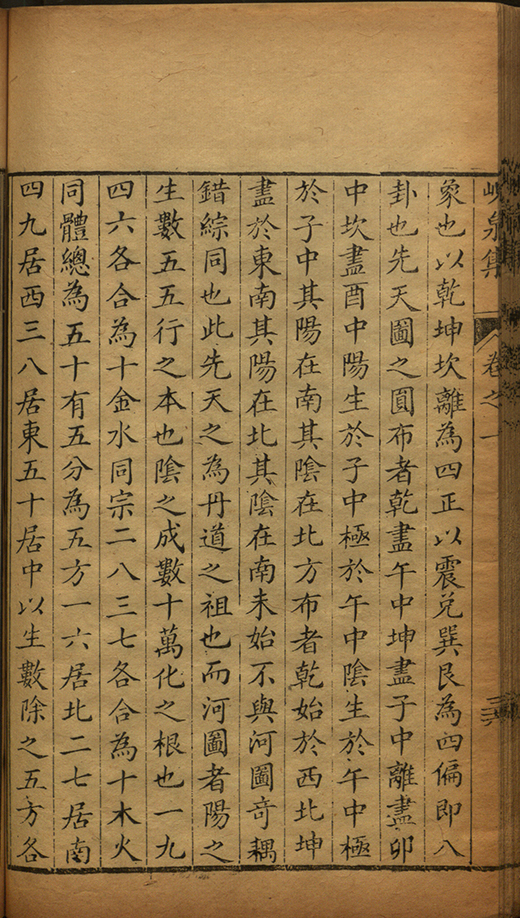 峴泉集
卷之一
象也以乾坤坎離為四正以震兌巽艮為四偏即八
卦也先天圖之圓布者乾盡午中坤盡子中離盡卯
中坎盡酉中陽生於子中極於午中陰生於午中極
於子中其陽在南其陰在北方布者乾始於西北坤
盡於東南其陽在北其陰在南未始不與河圖奇耦
錯綜同也此先天之為丹道之祖也而河圖者陽之
生數五五行之本也陰之成數十萬化之根也一九
四六各合為十金水同宗二八三七各合為十木火
同體總為五十有五分為五方一六居北二七居南
四九居西三八居東五十居中以生數除之五方各